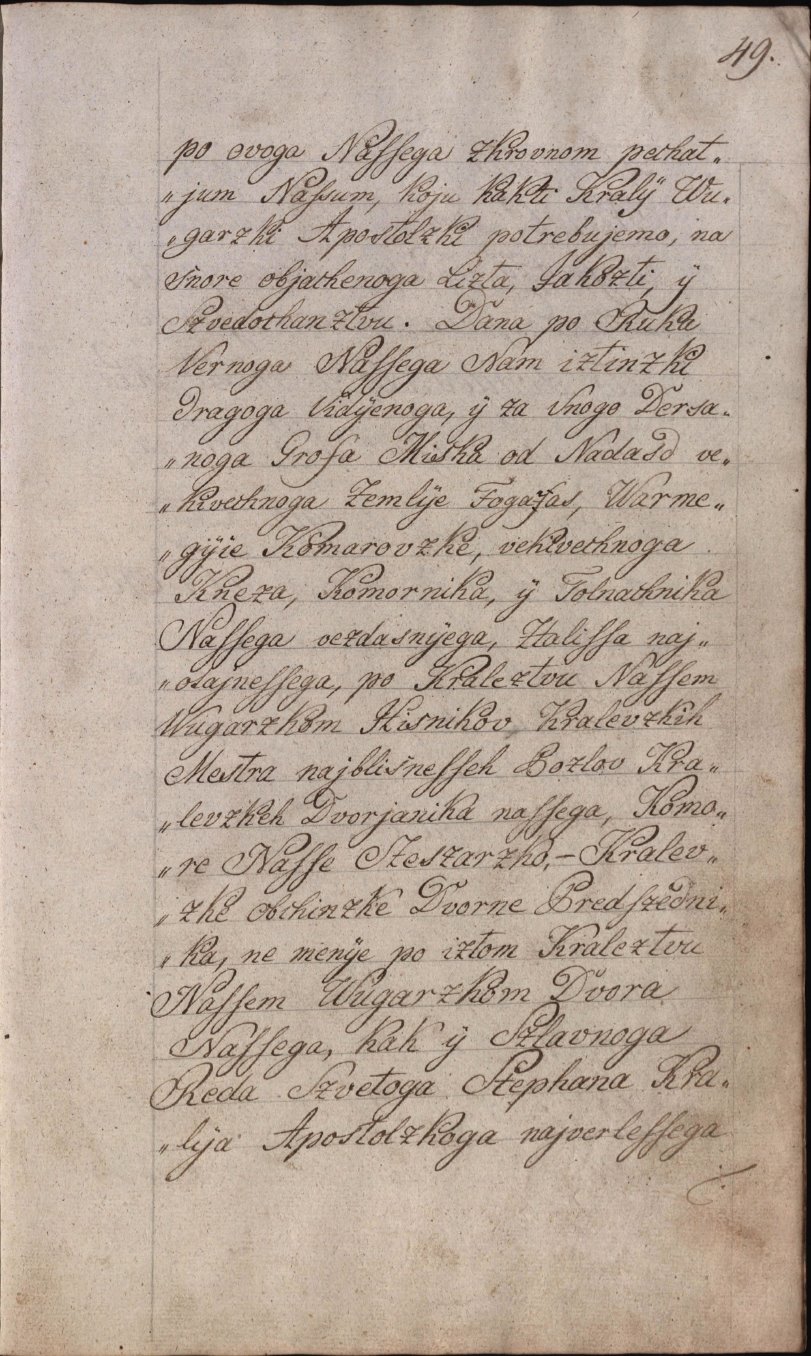 49.
po ovoga Nassega zkrovnom pechat„
„jum Nassum, koju kakti Kralÿ Wu„
„garzki Apostolzki potrebujemo, na
snore objachenoga Lizta, Jakozti, ÿ
Szvedochanztvu. Dana po Ruku
Vernoga Nassega Nam iztinzki
dragoga vidÿenoga, ÿ za vnogo Dersa„
„noga Grofa Miska od Nadasd ve„
„kivechnoga Zemlÿe Fogaras, Warme„
„gÿie Komarovzke, vekivechnoga
Kneza, Komornika, ÿ Tolnachnika
Nassega vezdasnÿega, ztalissa naj„
„otajnessega, po Kraleztvu Nassem
Wugarzkom Hisnikov Kralevzkih
Mestra najblisnesseh Bozlov Kra„
„levzkeh Dvorjanika nassega, Komo„
„re Nasse Czeszarzko,–Kralev„
„zke obchinzke Dvorne Predszedni„
„ka, ne menÿe po iztom Kraleztvu
Nassem Wugarzkom Dvora
Nassega, kak ÿ Szlavnoga
Reda Szvetoga Stephana Kra„
„lÿa Apostolzkoga najverlessega